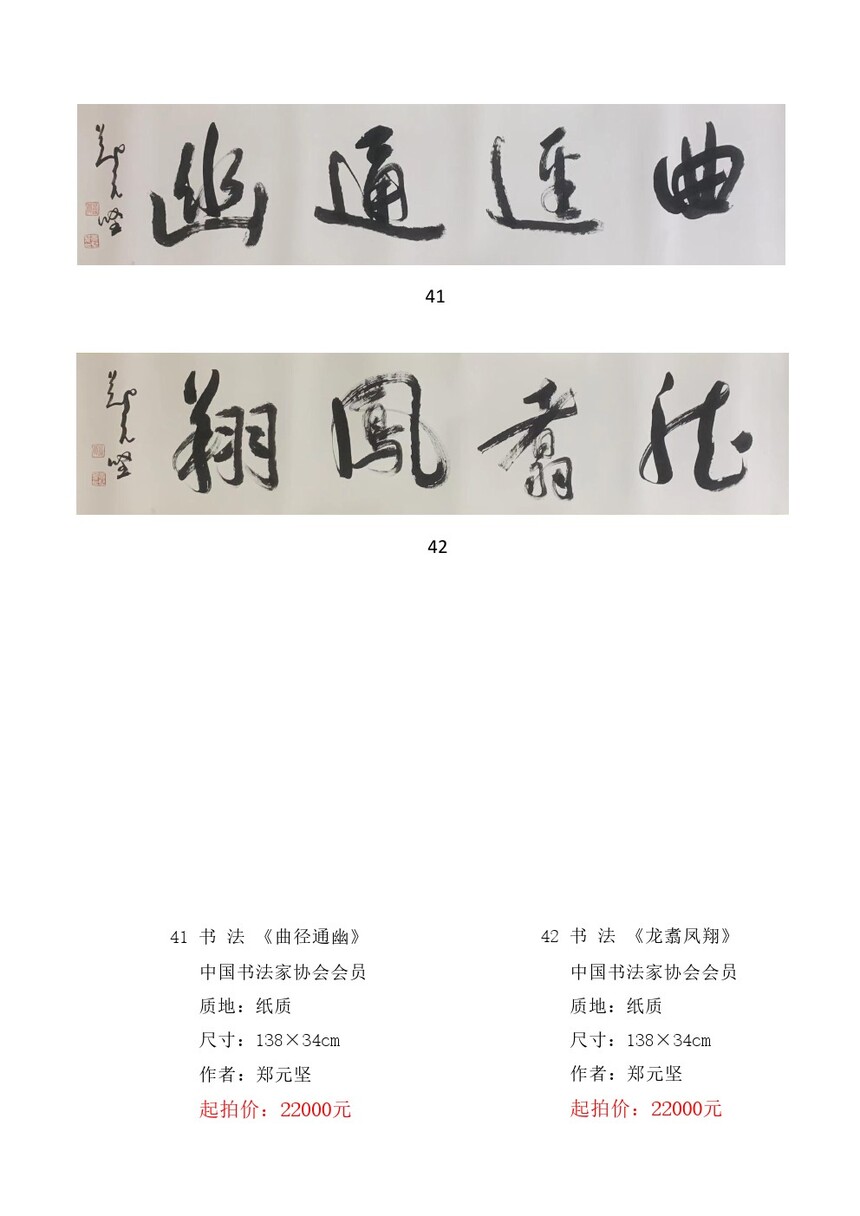 曲逕通幽
郑元坚
41
龙翥鳳翔
郑元坚
42
41 书 法 《曲径通幽》
中国书法家协会会员
质地：纸质
尺寸：138×34cm
作者：郑元坚
起拍价：22000元
42 书 法 《龙翥凤翔》
中国书法家协会会员
质地：纸质
尺寸：138×34cm
作者：郑元坚
起拍价：22000元